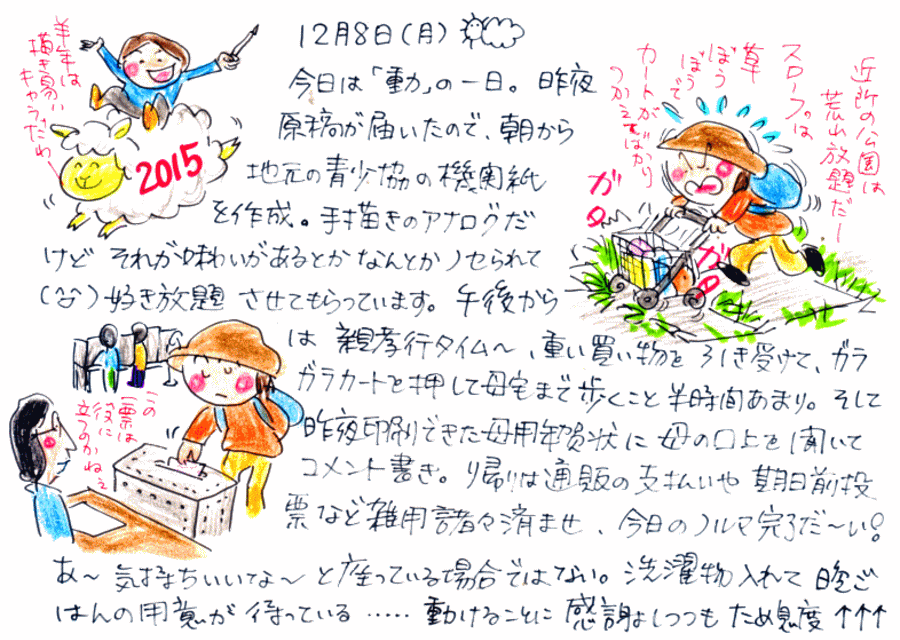 12月8日(月)
今日は「動」の一日。昨夜
原稿が届いたので、朝から
地元の青少協の機関紙
を作成。手描きのアナログだ
けど それが味わいがあるとかなんとかノセられて
(笑)好き放題 させてもらっています。午後から
は 親孝行タイム〜、重い買い物を引き受けて、ガラ
ガラカートを押して母宅まで歩くこと半時間あまり。そして
昨夜印刷できた母用年賀状に 母の口上を聞いて
コメント書き。帰りは通販の支払いや 期日前投
票など雑用諸々済ませ、今日のノルマ完了だ〜い!
あ〜 気持ちいいな〜 と座っている場合ではない。洗濯物入れて 晩ご
はんの用意が 待っている …… 動けることに 感謝しつつも ため息度 ↑↑↑
羊年は
描き易い
キャラだわー
2015
近所の公園は
荒山放題だー
スロープは
草
ぼう
ぼうで
カートが
つかえてばかり
ガ
ラ
ガ
ラ
この
一票は
役に
立つのかねぇ